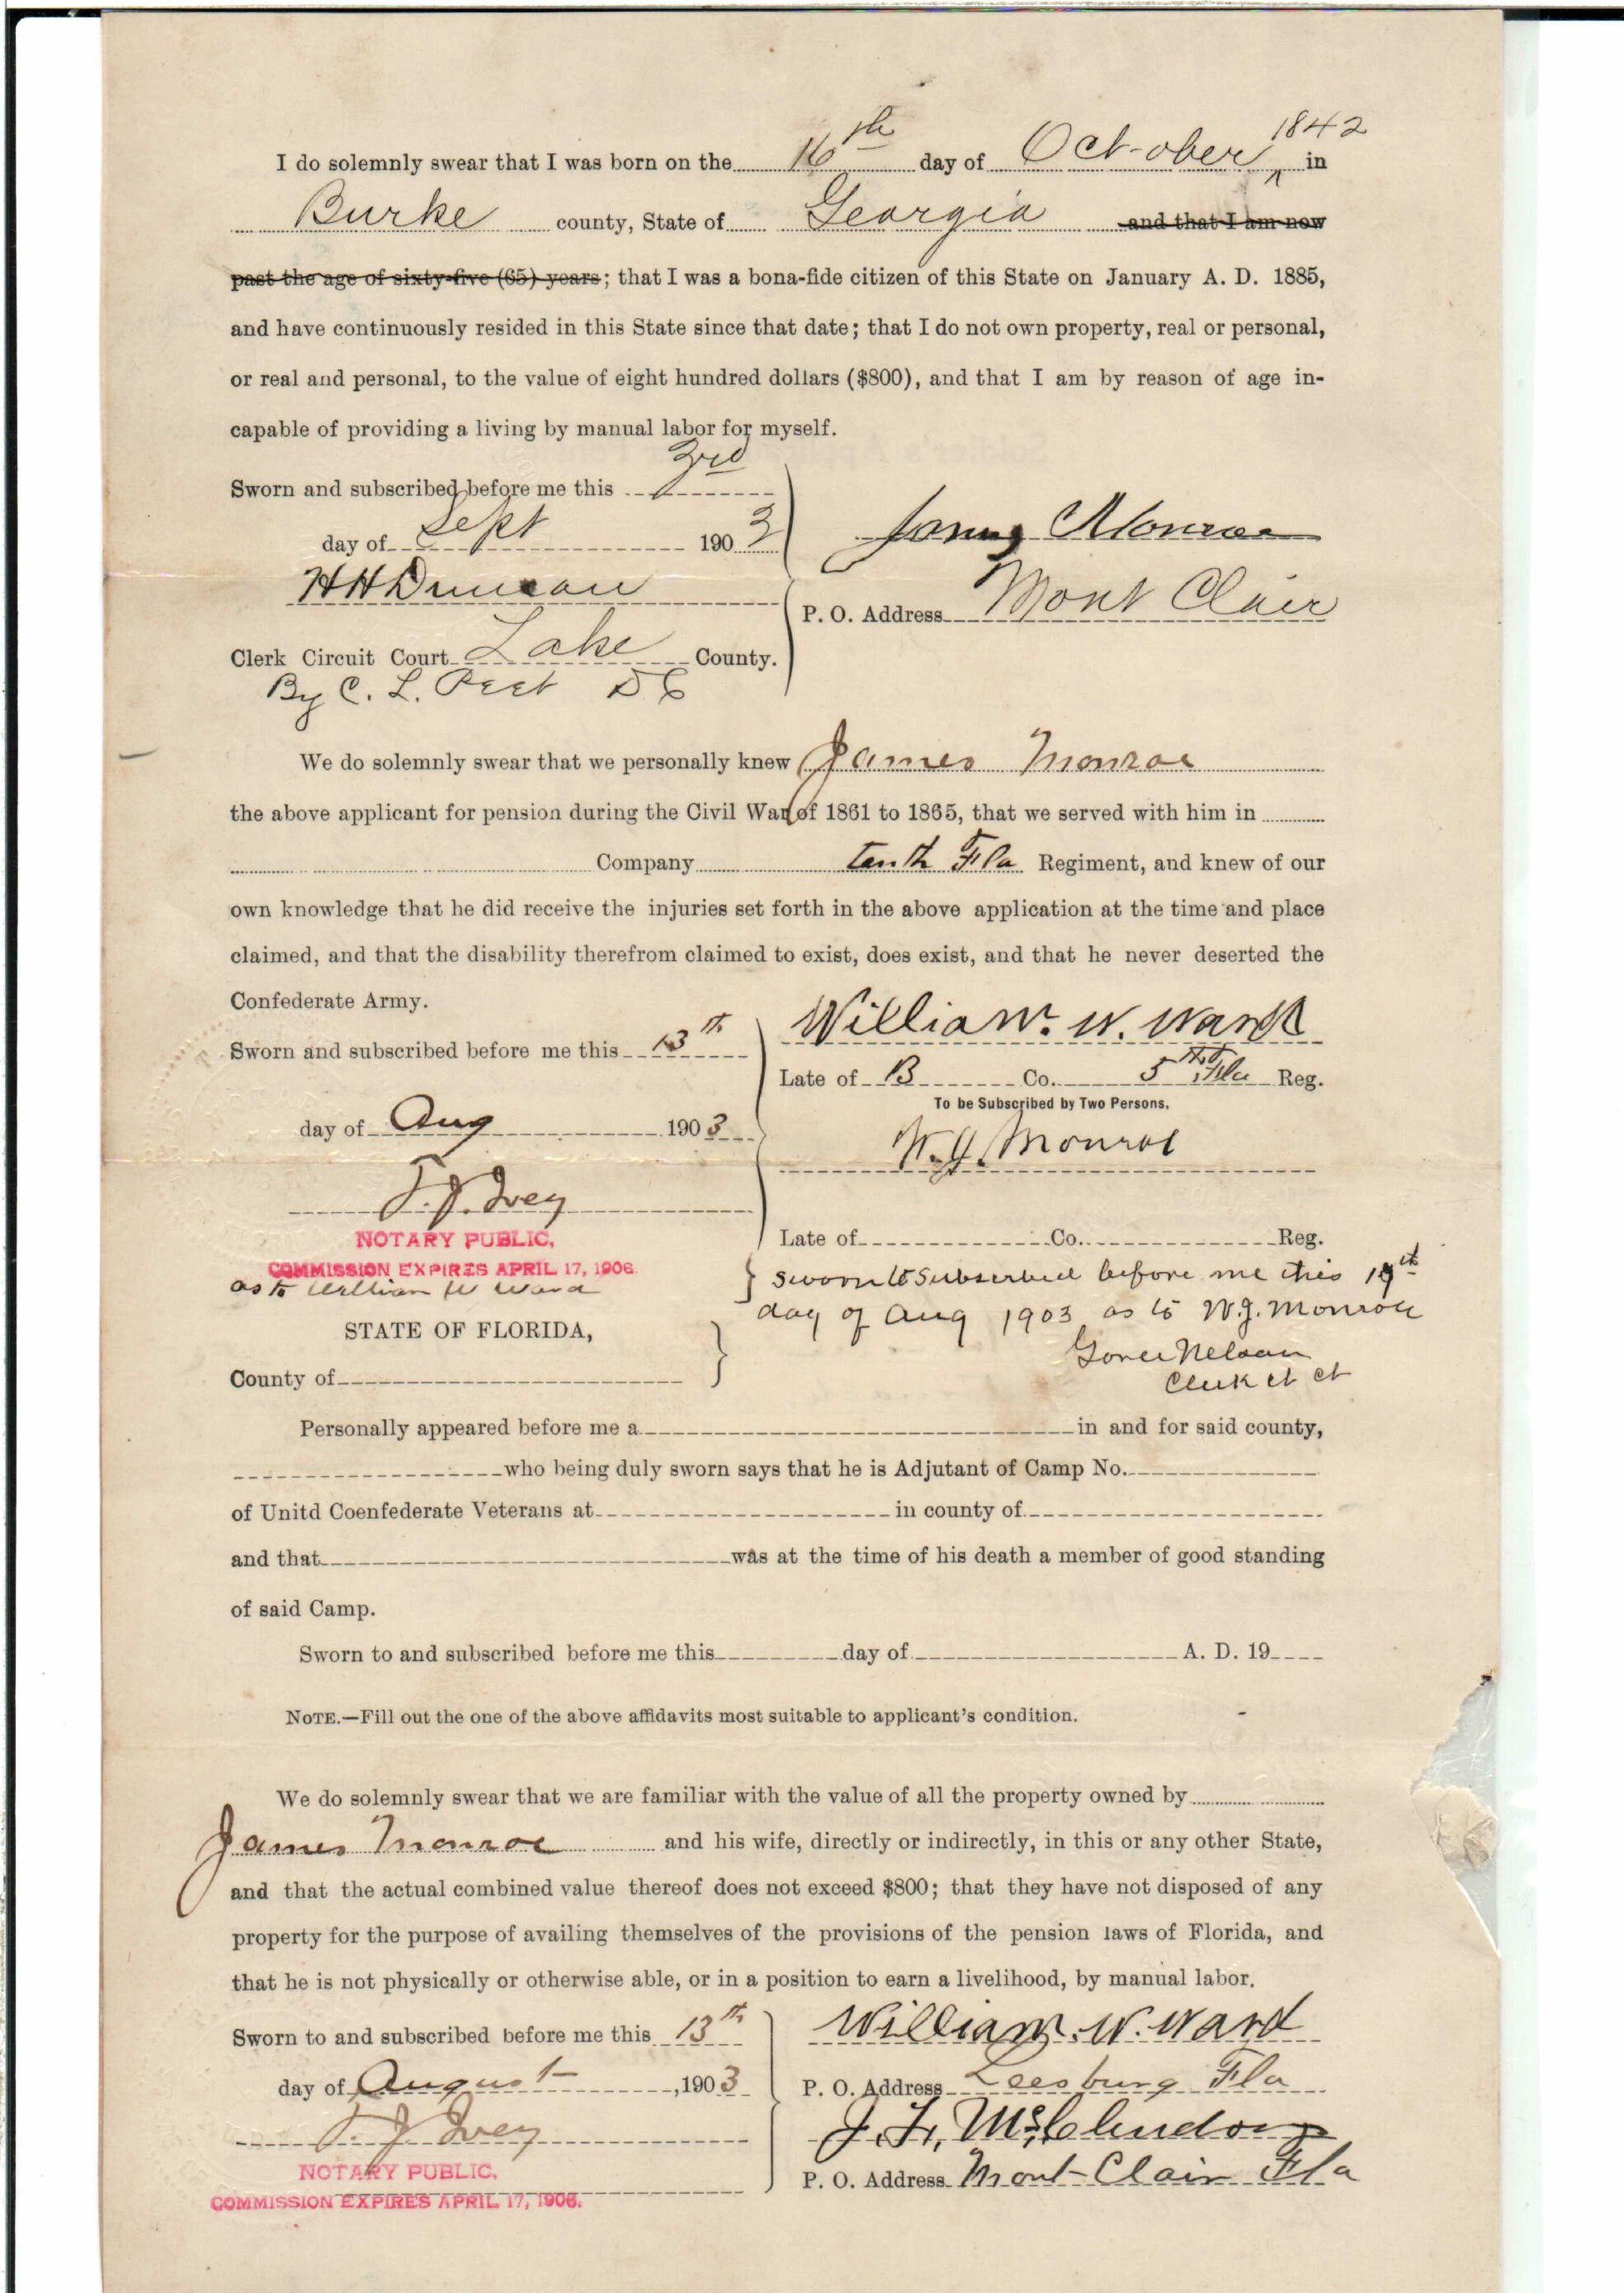 I do solemnly swear that I was born on the 16th day of October 1842 in
Burke county, State of Georgia and that I am now
past the age of sixty-five (65) years; that I was a bona-fide citizen of this State on January A. D. 1885,
and have continuously resided in this State since that date; that I do not own property, real or personal,
or real and personal, to the value of eight hundred dollars ($800), and that I am by reason of age in-
capable of providing a living by manual labor for myself.
Sworn and subscribed before me this 3rd
day of Sept 1903
Monroe
H H Duncan
P. O. Address Mont Clair
Clerk Circuit Court Lake County.
By C. L. Peet D C
We do solemnly swear that we personally knew James Monroe
the above applicant for pension during the Civil War of 1861 to 1865, that we served with him in
Company tenth Fla Regiment, and knew of our
own knowledge that he did receive the injuries set forth in the above application at the time and place
claimed, and that the disability therefrom claimed to exist, does exist, and that he never deserted the
Confederate Army.
William. W. Ward
Sworn and subscribed before me this 13th
Late of B Co. 5th Fla Reg.
To be Subscribed by Two Persons.
day of Aug 1903
W. J. Monroe
T. J. Ivey
NOTARY PUBLIC,
Late of Co. Reg.
COMMISSION EXPIRES APRIL 17, 1906.
as to William W Ward
sworn to & subscribed before me this 19th
day of Aug 1903 as to W. J. Monroe
STATE OF FLORIDA,
Nelson
County of
Clerk Ct Ct
Personally appeared before me a in and for said county,
who being duly sworn says that he is Adjutant of Camp No.
of Unitd Coenfederate Veterans at in county of
and that was at the time of his death a member of good standing
of said Camp.
Sworn to and subscribed before me this day of A. D. 19
NOTE.—Fill out the one of the above affidavits most suitable to applicant's condition.
We do solemnly swear that we are familiar with the value of all the property owned by
James Monroe and his wife, directly or indirectly, in this or any other State,
and that the actual combined value thereof does not exceed $800; that they have not disposed of any
property for the purpose of availing themselves of the provisions of the pension laws of Florida, and
that he is not physically or otherwise able, or in a position to earn a livelihood, by manual labor.
Sworn to and subscribed before me this 13th
William. W. Ward
day of August, 1903
P. O. Address Leesburg Fla
T. J. Ivey
J. F. McClendon
NOTARY PUBLIC,
P. O. Address Mont-Clair Fla
COMMISSION EXPIRES APRIL 17, 1906.